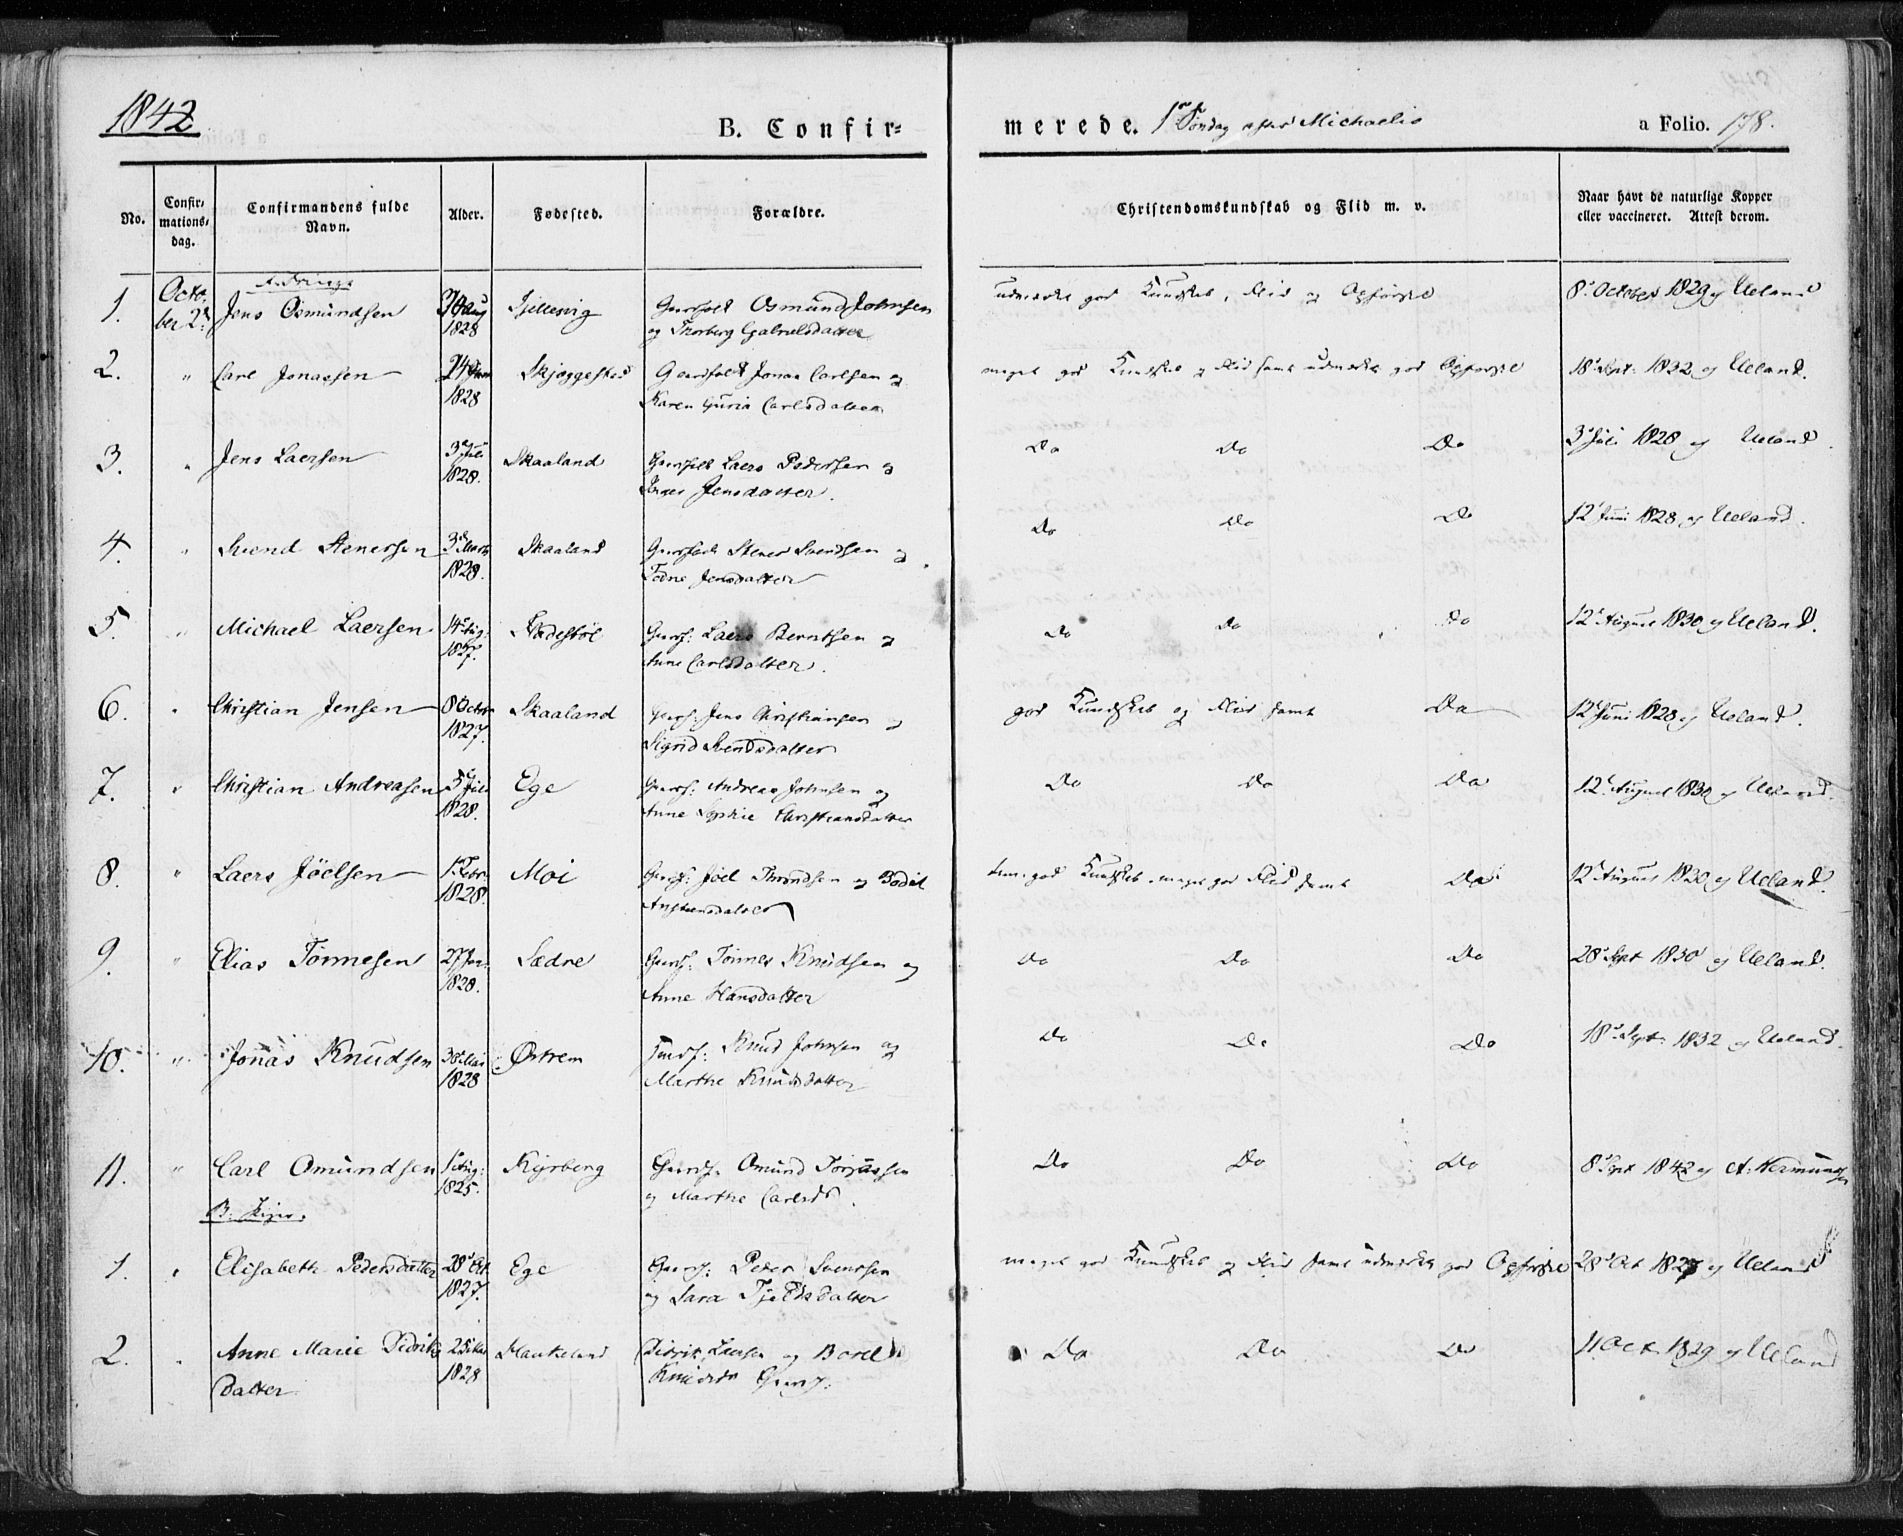 1842
B. Confir=
merede. 1ste Søndag efter Michaelis
a Folio. 178.
No.
Confir=
mations=
dag.
Confirmandens fulde
Navn.
Alder.
Fødested.
Forældre.
Christendomskundskab og Flid m. v.
Naar havt de naturlige Kopper
eller vaccineret. Attest derom.
A. Drenge
1. Octo- ber 2d Jens Osmundsen 1828 Gaardf Osmund Johnsen
og Thorberg Gabrielsdatter
god Kundskab, Flid og Opførsel 8d October 1829 Ueland
2. " Carl Jonassen 1828 Skjeggestad Jonas Carlsen og
Karen Guria Carlsdatter
meget god Kundskab og Flid samt udmærket god Opførsel 18d Sept. 1832 Ueland.
3. " Jens Laersen 3d Juli 1828. Skaaland Laers Pedersen og
Jensdatter.
Do Do Do 3d Juli 1828 Ueland.
4. " Svend Stenersen 3d Marts 1828. Skaaland Stener Svendsen og
Todne Jensdatter
Do Do Do 12d Juni 1828 Ueland.
5. " Michael Laersen 14d Aug. 1827. Gaardf: Laers Berntsen og
Anne Carlsdatter.
Do Do Do 12d August 1830 Ueland.
6. " Christian Jensen 8 Octob 1827. Skaaland Gaardf: Jens Christiansen og
Sigrid Svendsdatter
god Kundskab og Flid samt Do 12d Juni 1828 Ueland.
7. " Christian Andreasen 5d Juli 1828. Ege Gaardf: Andreas Johnsen og
Anne Sophie Christiansdatter
Do Do Do 12d August 1830 Ueland.
8. " Laers Jöelsen 1ste Febr. 1828. Moi Gaardf: Jöel Throndsen og Bodil
god Kundskab, meget god Flid samt Do 12d August 1830 Ueland.
9. " Elias Tönnesen 27 Jan. 1828. Sædre Gaardf: Tönnes Knudsen og
Anne Hansdatter
Do Do Do 28d Sept 1830 Ueland.
10. " Jonas Knudsen 1828 Østrem Knud Johnsen og
Marthe Knudsdatter
Do Do Do 18d Sept. 1832 Ueland.
11. " Carl Omundsen 1825. Kyrberg Gaardf. Omund
og Marthe Carlsd.
Do Do Do 8d Sept 1842
B. Piger.
1. " Elisabeth Pedersdatter 28d Oct 1827. Ege Gaardf: Peder Svendsen
og Sara
meget god Kundskab og Flid samt udmærket god Opførsel 28d Oct 1827 Ueland
2. " Anne Marie Didriks
datter 1828 Haukeland Didrik Larsen og Borel
Knudsd. Gaardf:
Do Do Do 11 Oct. 1829 Ueland